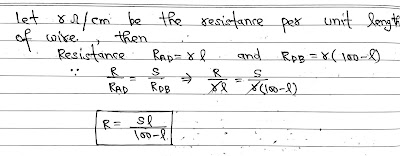 Let γ Ω/cm be the resistance per unit length
of wire, then
∵ Resistance R_AD = γl and R_DB = γ(100-l)
R/R_AD = S/R_DB ⇒ R/γl = S/γ(100-l)
R = Sl/100-l